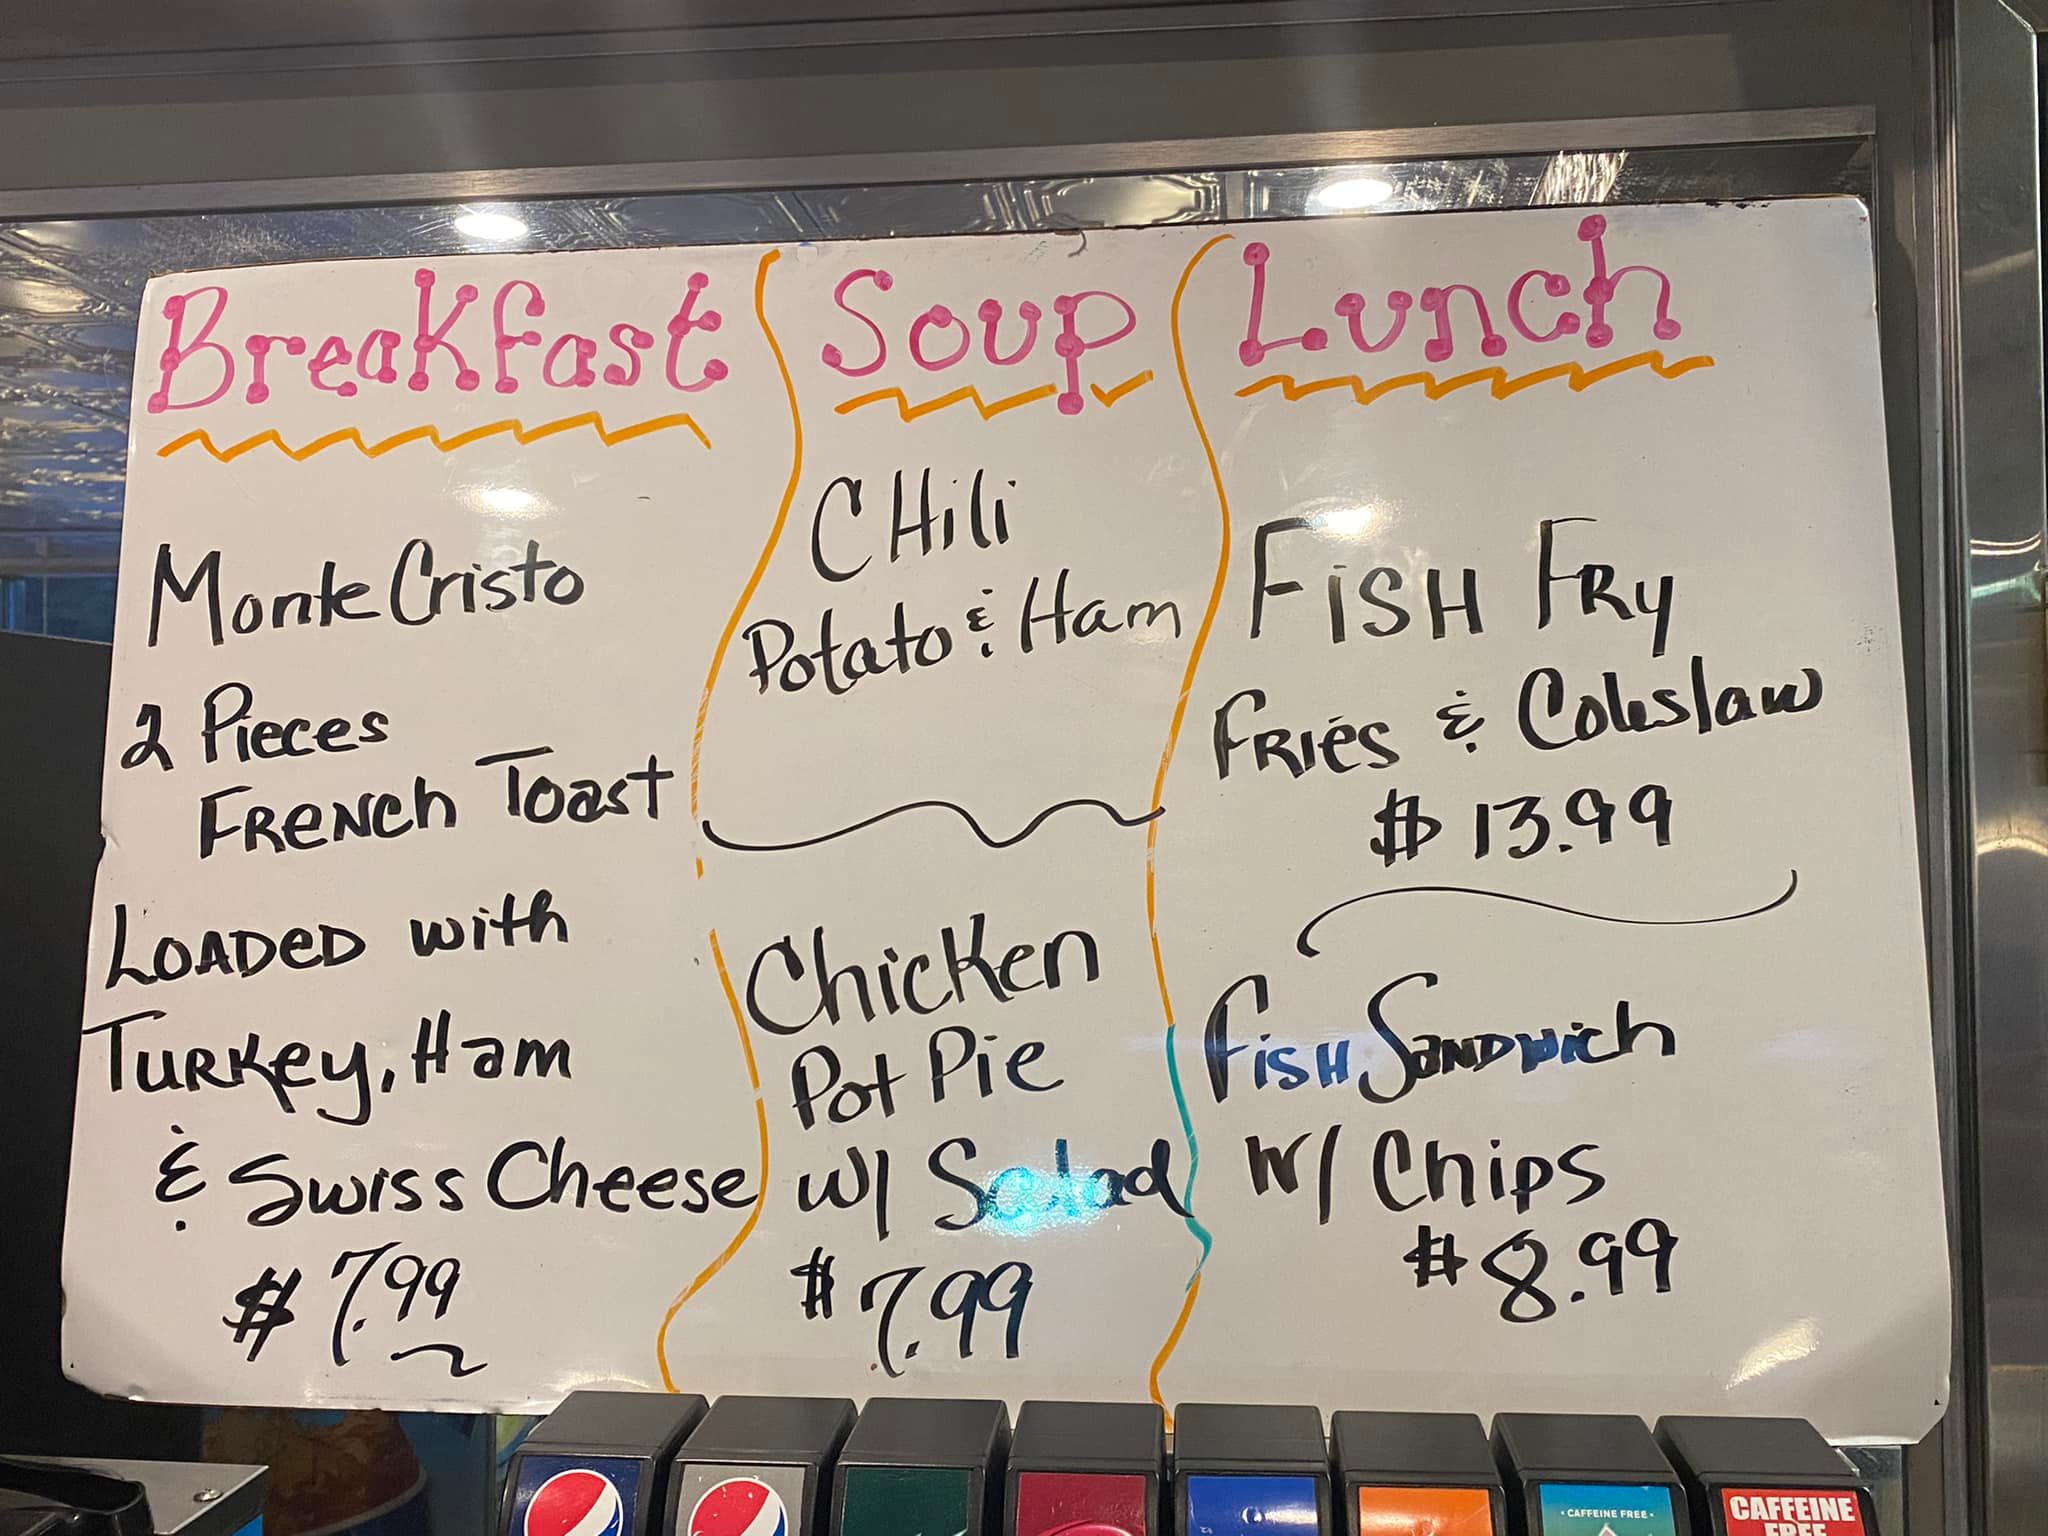 Breakfast
Monte Cristo
2 Pieces
French Toast
Loaded with
Turkey, Ham
& Swiss Cheese
$7.99
Soup
CHili
Potato & Ham
Chicken
Pot Pie
w/ Salad
$7.99
Lunch
FiSH FRy
FRieS & Coleslaw
$13.99
FiSH SANDWich
W/ Chips
$8.99
CAFFEINE FREE
CAFFEINE
FREE